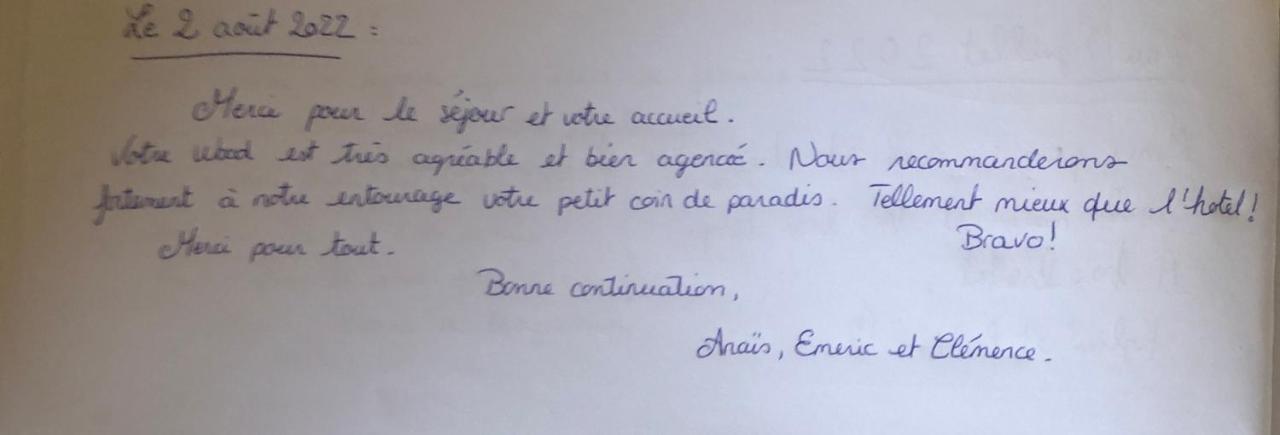 Le 2 août 2022 :
Merci pour le séjour et votre accueil.
Votre est très agréable et bien agencé. Nous recommanderons
fortement à notre entourage votre petit coin de paradis. Tellement mieux que l'hotel !
Merci pour tout. Bravo !
Bonne continuation,
Anaïs, Emeric et Clémence.